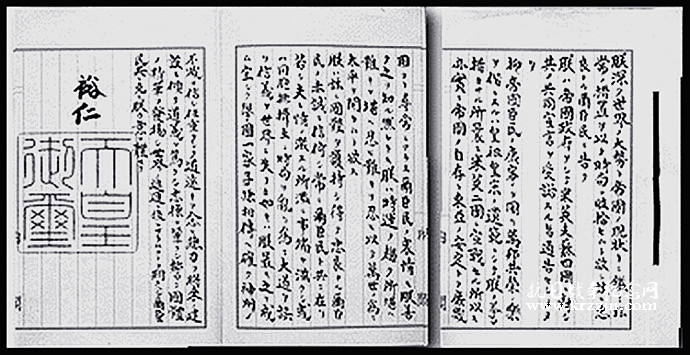 朕深ク世界ノ大勢ト帝國ノ現狀トニ鑑ミ非
常ノ措置ヲ以テ時局ヲ收拾セムト欲シ茲ニ
良ナル爾臣民ニ告ク
朕ハ帝國政府ヲシテ米英支蘇四國ニ
其ノ共同宣言ヲ受諾スル旨通告セシメタ
リ
抑帝國臣民ノ康寧ヲ圖リ萬邦共榮ノ樂
ヲ偕ニスルハ皇祖皇宗ノ遺範ニシテ朕ノ
措カサル所曩ニ米英二國ニ宣戰セル所以モ
亦實ニ帝國ノ自存ト東亞ノ安定トヲ庶幾
固ヨリ尋常ニアラス爾臣民ノ衷情モ朕善
ク之ヲ知ル然レトモ朕ハ時運ノ趨ク所堪ヘ
難キヲ堪ヘ忍ヒ難キヲ忍ヒ以テ萬世ノ爲ニ
太平ヲ開カムト欲ス
朕ハ茲ニ國體ヲ護持シ得テ忠良ナル爾臣
民ノ赤誠ニ信倚シ常ニ爾臣民ト共ニ在リ
若シ夫レ情ノ激スル所濫ニ事端ヲ滋クシ或
ハ同胞排擠互ニ時局ヲ亂リ爲ニ大道ヲ誤
リ信義ヲ世界ニ失フカ如キハ朕最モ之ヲ戒
ム宜シク擧國一家子孫相傳ヘ確ク神州ノ
不滅ヲ信シ任重クシテ道遠キヲ念ヒ總力ヲ將來ノ建
設ニ傾ケ道義ヲ篤クシ志操ヲ鞏クシ誓テ國體
ノ精華ヲ發揚シ世界ノ進運ニ後レサラムコトヲ期スヘシ爾臣
民其レ克ク朕カ意ヲ體セヨ
裕仁
天皇
御璽